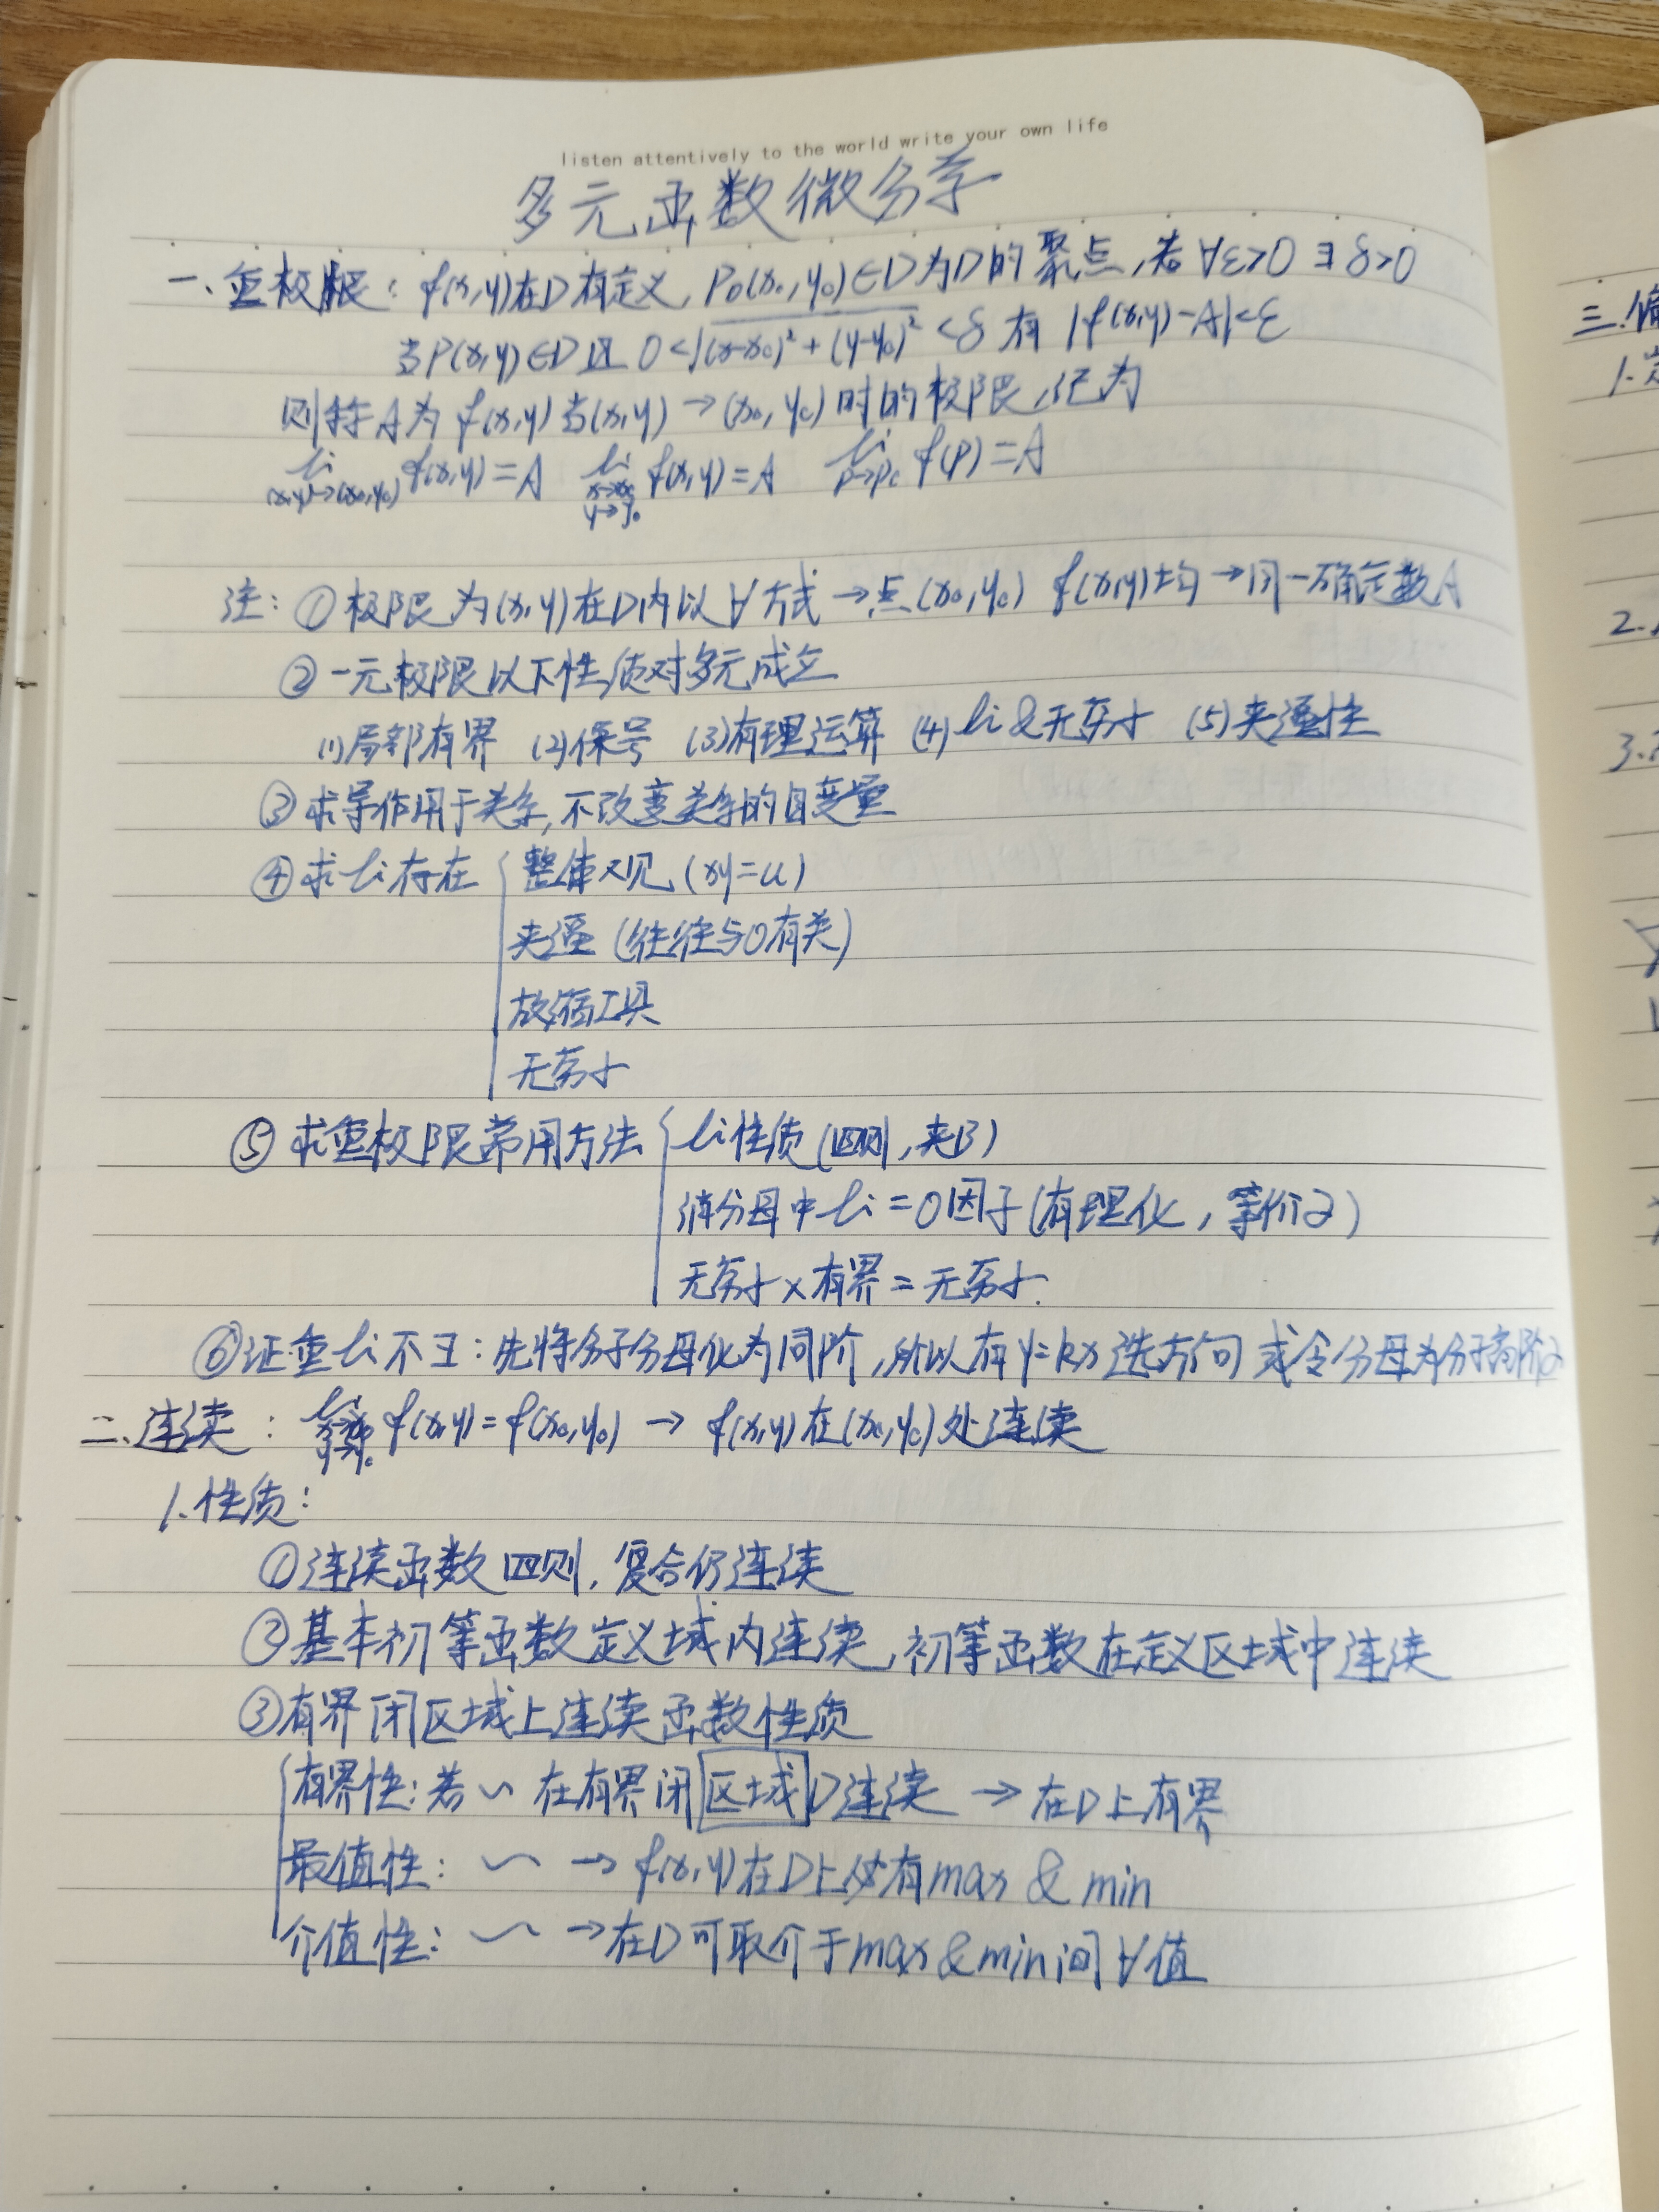 listen attentively to the world write your own life
多元函数微分学
一、重极限：f(x,y)在D有定义，P₀(x₀,y₀)∈D为D的聚点，若∀ε>0 ∃δ>0
当P(x,y)∈D且 0<√(x-x₀)²+(y-y₀)² <δ 有 |f(x,y)-A|<ε
则称A为 f(x,y)当(x,y)→(x₀,y₀)时的极限，记为
li(x,y)→(x₀,y₀) f(x,y)=A li x→x₀ y→y₀ f(x,y)=A li P→P₀ f(P)=A
注：①极限为(x,y)在D内以∀方式→点(x₀,y₀) f(x,y)均→同一确定数A
②一元极限以下性质对多元成立
(1)局部有界 (2)保号 (3)有理运算 (4)li&无穷小 (5)夹逼性
③求导作用于关系，不改变关系的自变量
④求li存在 整体观 (xy=u)
夹逼 (往往与0有关)
放缩工具
无穷小
⑤求重极限常用方法 li性质(四则，夹B)
消分母中li=0因子(有理化，等价∂)
无穷小×有界=无穷小.
⑥证重li不∃：先将分子分母化为同阶，所以有y=kx选方向 或令分母为分子高阶∂
二、连续： li x→x₀ y→y₀ f(x,y)=f(x₀,y₀) → f(x,y)在(x₀,y₀)处连续
1.性质：
①连续函数四则，复合仍连续
②基本初等函数定义域内连续，初等函数在定义区域中连续
③有界闭区域上连续函数性质
有界性：若〜在有界闭区域D连续 → 在D上有界
最值性：〜 → f(x,y)在D上必有max & min
介值性：〜 →在D可取介于max&min间∀值
三.偏
1.
2.
3.